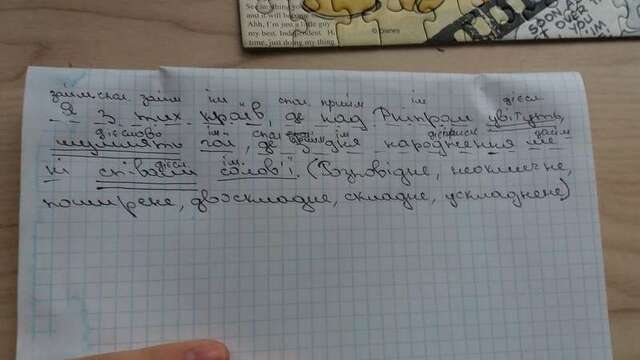 See in
and it will become
Ahh, I'm just a little guy
my best. Independent H
time, just doing my thing
© Disney
SPOON
OVER T
YOU
займ спол займ ім спол прийм ім дієсл
Я з тих країв, де над Дніпром цвітуть,
дієслово ім спол ім займ
шумлять гаї, де з дня народження ме-
дієсл ім
ні співали солов'ї. (Розповідне, неоклично,
поширене, двоскладне, складне, ускладнене)